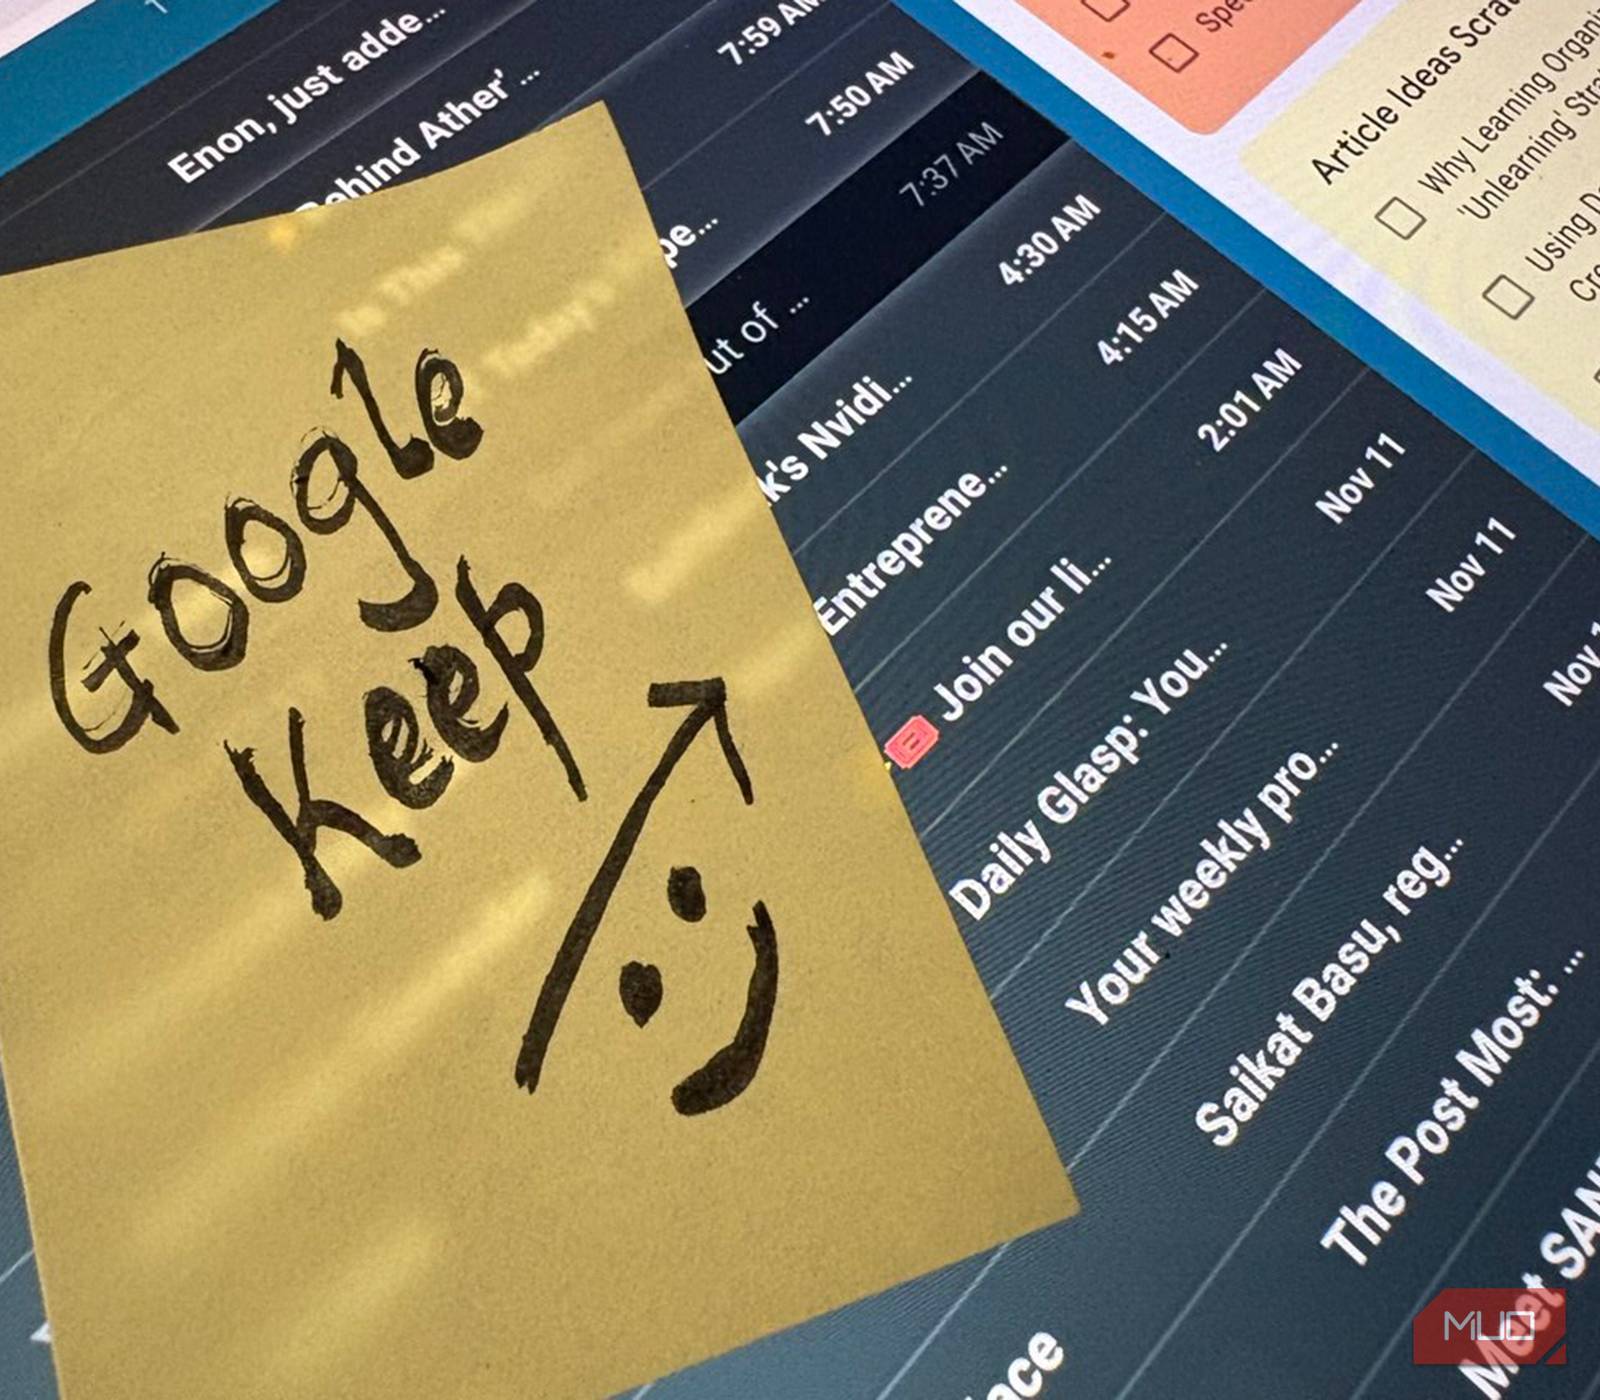 Enon, just adde...
Behind Ather' ...
7:59 AM
pe...
7:50 AM
ut of ...
7:37 AM
k's Nvidi...
4:30 AM
Entreprene...
4:15 AM
Join our li...
2:01 AM
Daily Glasp: You...
Nov 11
Your weekly pro...
Nov 11
Saikat Basu, reg...
Nov 1
The Post Most: ...
Meet SAN
ace
Google
Keep
In This
Today's
Spe
Article Ideas Scrat
Why Learning Organi
'Unlearning' Stra
Using D
Cre
MUO